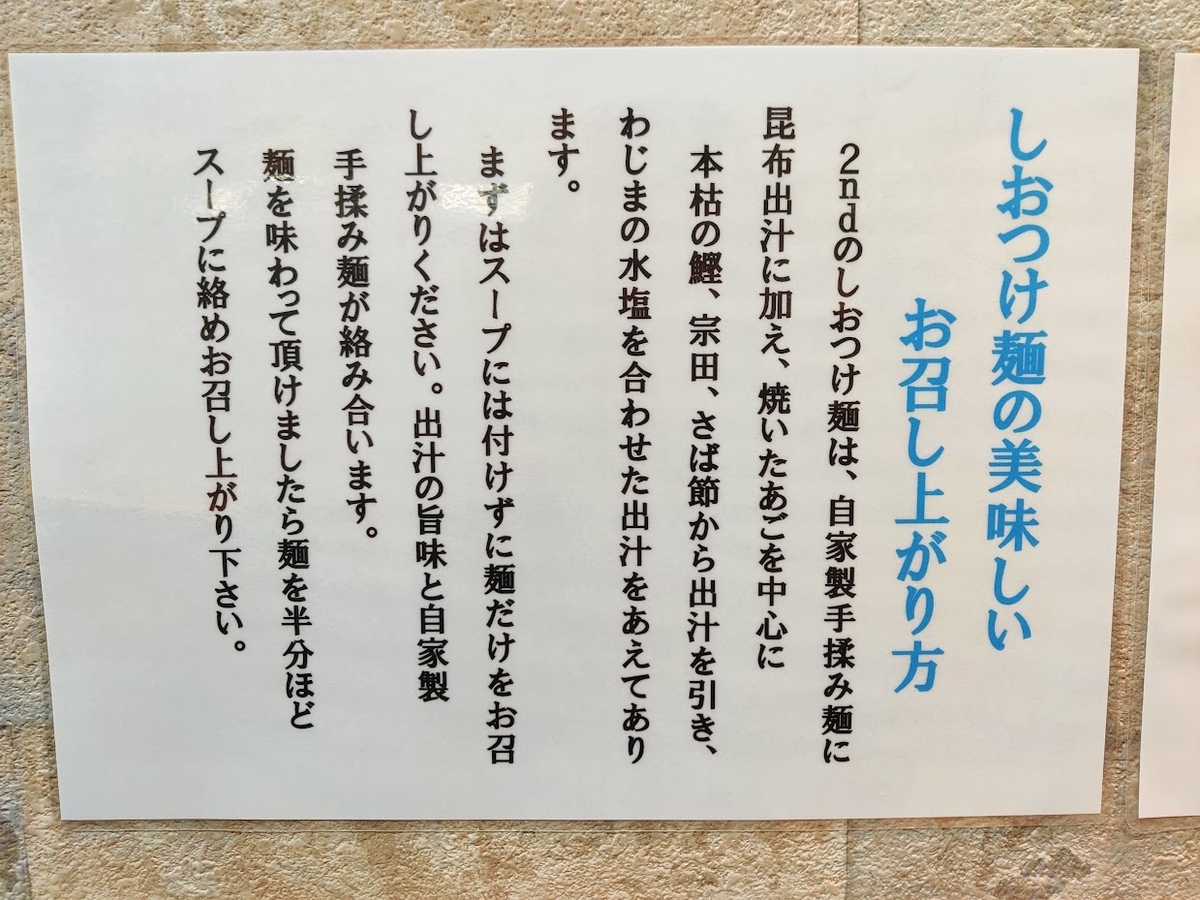 しおつけ麺の美味しい
お召し上がり方
2ndのしおつけ麺は、自家製手揉み麺に
昆布出汁に加え、焼いたあごを中心に
本枯の鰹、宗田、さば節から出汁を引き、
わじまの水塩を合わせた出汁をあえてあり
ます。
まずはスープには付けずに麺だけをお召
し上がりください。出汁の旨味と自家製
手揉み麺が絡み合います。
麺を味わって頂けましたら麺を半分ほど
スープに絡めお召し上がり下さい。